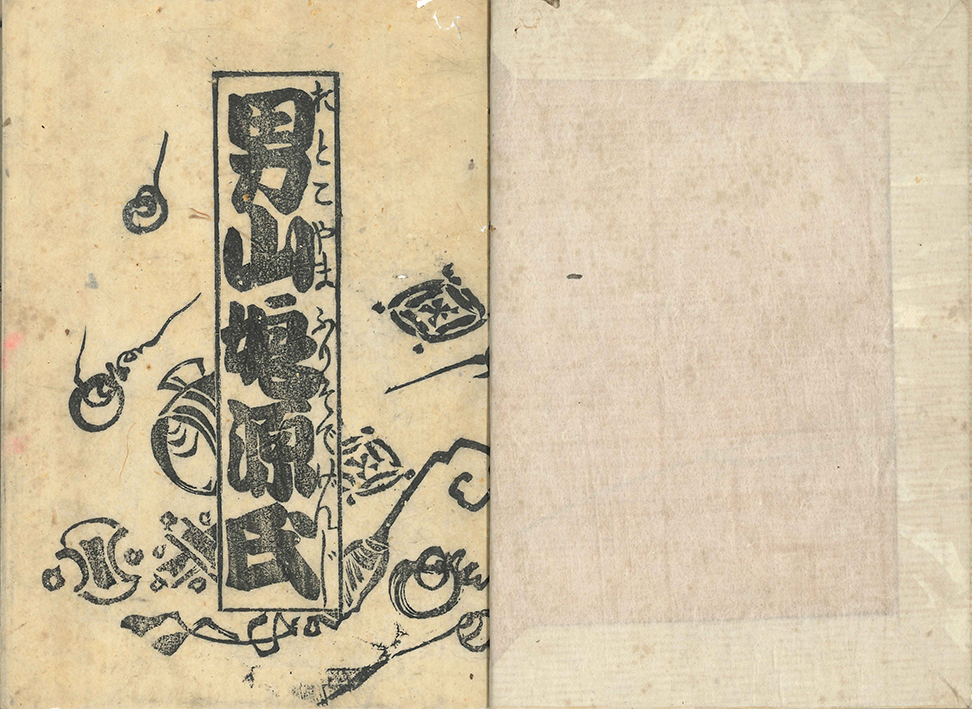 男山源氏
おとこやまふりそでげんじ